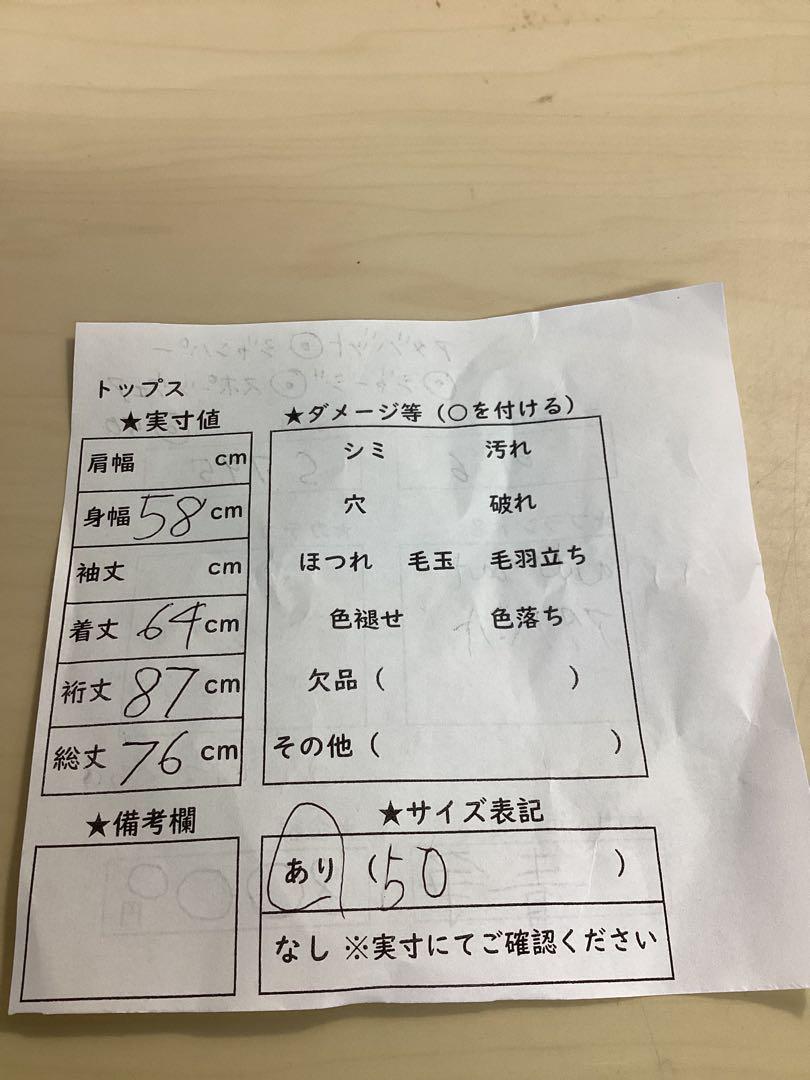 トップス
★実寸値
肩幅 cm
身幅 58 cm
袖丈 cm
着丈 64 cm
裄丈 87 cm
総丈 76 cm
★ダメージ等（○を付ける）
シミ 汚れ
穴 破れ
ほつれ 毛玉 毛羽立ち
色褪せ 色落ち
欠品（ ）
その他（ ）
★備考欄
★サイズ表記
あり（50 ）
なし ※実寸にてご確認ください